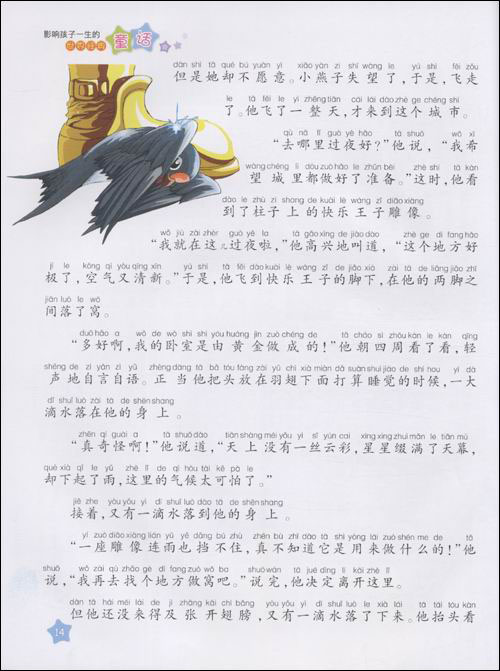 影响孩子一生的
世界经典
童话
dàn shì tā què bú yuàn yì xiǎo yàn zi shī wàng le yú shì fēi zǒu
但是她却不愿意。小燕子失望了,于是,飞走
le tā fēi le yì zhěng tiān cái lái dào zhè ge chéng shì
了。他飞了一整天,才来到这个城市。
qù nǎ lǐ guò yè hǎo tā shuō wǒ xī
“去哪里过夜好?”他说,“我希
wàng chéng lǐ dōu zuò hǎo le zhǔn bèi zhè shí tā kàn
望城里都做好了准备。”这时,他看
dào le zhù zi shàng de kuài lè wáng zǐ diāo xiàng
到了柱子上的快乐王子雕像。
wǒ jiù zài zhèr guò yè la tā gāo xìng de jiào dào zhè ge dì fang hǎo
“我就在这儿过夜啦,”他高兴地叫道,“这个地方好
jí le kōng qì yòu qīng xīn yú shì tā fēi dào kuài lè wáng zǐ de jiǎo xià zài tā de liǎng jiǎo zhī
极了,空气又清新。”于是,他飞到快乐王子的脚下,在他的两脚之
jiān luò le wō
间落了窝。
duō hǎo a wǒ de wò shì shì yóu huáng jīn zuò chéng de tā cháo sì zhōu kàn le kàn qīng
“多好啊,我的卧室是由黄金做成的!”他朝四周看了看,轻
shēng de zì yán zì yǔ zhèng dāng tā bǎ tóu fàng zài yǔ chì xià miàn dǎ suàn shuì jiào de shí hou yí dà
声地自言自语。正当他把头放在羽翅下面打算睡觉的时候,一大
dī shuǐ luò zài tā de shēn shang
滴水落在他的身上。
zhēn qí guài a tā shuō dào tiān shàng méi yǒu yì sī yún cai xīng xing zhuì mǎn le tiān mù
“真奇怪啊!”他说道,“天上没有一丝云彩,星星缀满了天幕,
què xià qǐ le yǔ zhè lǐ de qì hòu tài kě pà le
却下起了雨,这里的气候太可怕了。”
jiē zhe yòu yǒu yì dī shuǐ luò dào tā de shēn shang
接着,又有一滴水落到他的身上。
yí zuò diāo xiàng lián yǔ yě dǎng bú zhù zhēn bù zhī dào tā shì yòng lái zuò shén me de tā
“一座雕像连雨也挡不住,真不知道它是用来做什么的!”他
shuō wǒ zài qù zhǎo ge dì fang zuò wō ba shuō wán tā jué dìng lí kāi zhè lǐ
说,“我再去找个地方做窝吧。”说完,他决定离开这里。
dàn tā hái méi lái de jí zhāng kāi chì bǎng yòu yǒu yì dī shuǐ luò le xià lái tā tái tóu kàn
但他还没来得及张开翅膀,又有一滴水落了下来。他抬头看
14